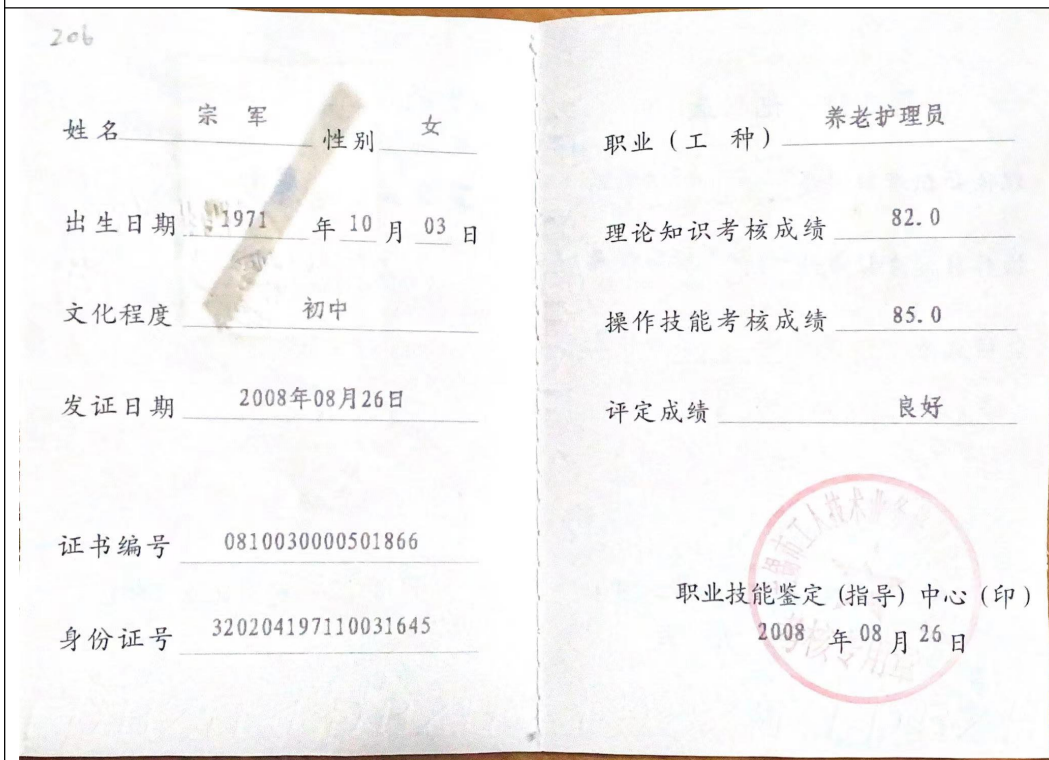 206
姓名 宗军 性别 女
出生日期 1971 年 10 月 03 日
文化程度 初中
发证日期 2008年08月26日
证书编号 0810030000501866
身份证号 320204197110031645
职业（工 种） 养老护理员
理论知识考核成绩 82.0
操作技能考核成绩 85.0
评定成绩 良好
职业技能鉴定(指导)中心(印)
2008 年 08 月 26 日
市工人技术业务
考核专用章